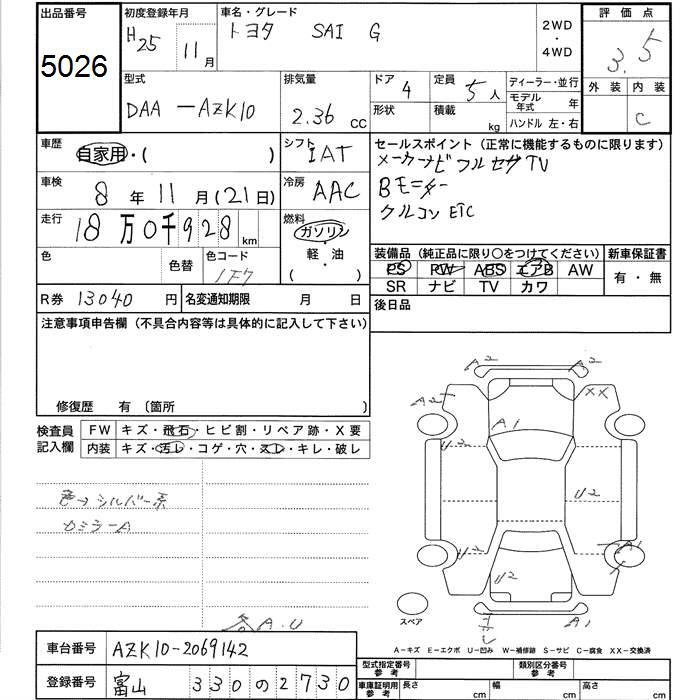 出品番号 初度登録年月 車名・グレード 評価点
5026 H25 11月 トヨタ SAI G 2WD・4WD 3.5
外装 内装
C
型式 排気量 ドア 定員 ディーラー・並行
DAA-AZK10 2.36 cc 4 5人 モデル年式 年
形状 積載 kg ハンドル 左・右
車歴 シフト セールスポイント (正常に機能するものに限ります)
自家用・( ) IAT メーカーナビ フルセグTV
車検 冷房 Bモニター
8年11月(21日) AAC クルコン ETC
走行 燃料
18万0千928km ガソリン・軽・油
( )
色 色替 色コード 1F7
装備品 (純正品に限り○をつけてください) 新車保証書
PS PW ABS エアB AW 有・無
SR ナビ TV カワ
R券 13040円 名変通知期限 月 日
後日品
注意事項申告欄 (不具合内容等は具体的に記入して下さい)
修復歴 有 〔箇所 〕
検査員記入欄 FW キズ・飛石・ヒビ割・リペア跡・X要
内装 キズ・汚レ・コゲ・穴・スレ・キレ・破レ
色→シルバー系
カミラーA
各A.U
A2 A2
A2 XX
A1
U2
U2
U2 A1
U2
A1
スペア
A-キズ E-エクボ U-凹み W-補修跡 S-サビ C-腐食 XX-交換済
車台番号 AZK10-2069142
登録番号 富山 330の2730
型式指定番号 参考 類別区分番号 参考
車庫証明用 参考 長さ cm 幅 cm 高さ cm